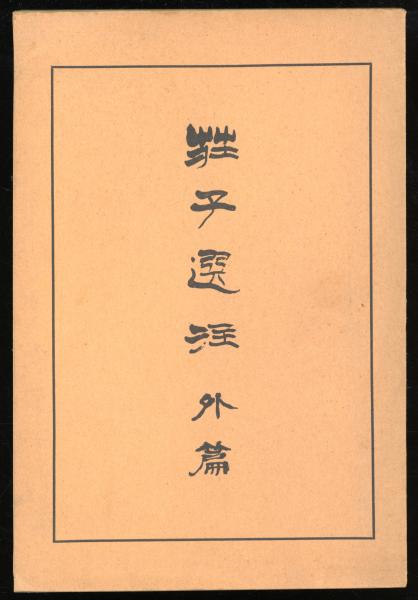 莊子選注 外篇